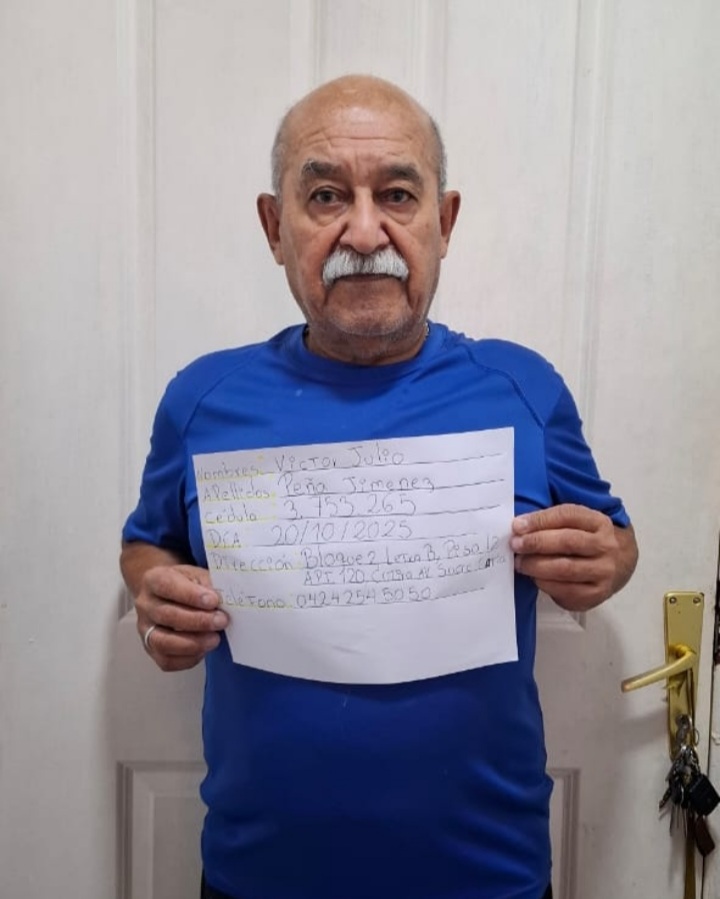 Nombres: Victor Julio
Apellidos: Peña Jimenez
Cédula: 3.753 265
DÍA: 20/10/2025
Dirección: Bloque 2 Letra B, Piso 12
APT. 120.
Teléfono: 0424 254 50 50